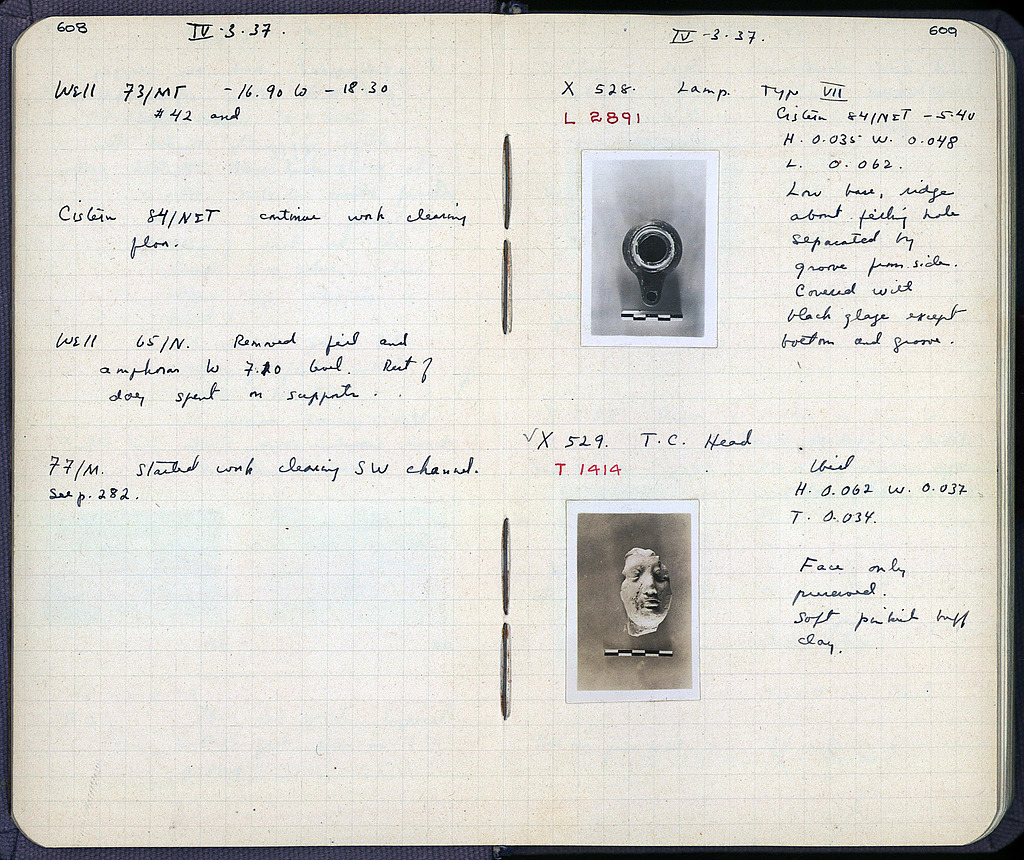 608
IV-3-37.
Well 73/MT -16.90 to -18.30
#42 and
Cistern 84/NET continue work clearing
floor.
Well 65/N. Removed fill and
amphoras to 7.10 level. Rest of
day spent on supports.
77/M. Started work clearing SW channel.
See p. 282.
609
IV-3-37.
X 528. Lamp. Type VII
L 2891
Cistern 84/NET -5.40
H. 0.035 W. 0.048
L. 0.062.
Low base, ridge
about filling hole
separated by
groove from side.
Covered with
black glaze except
bottom and groove.
√X 529. T.C. Head
T 1414
Ibid
H. 0.062 W. 0.037
T. 0.034.
Face only
preserved.
Soft pinkish buff
clay.